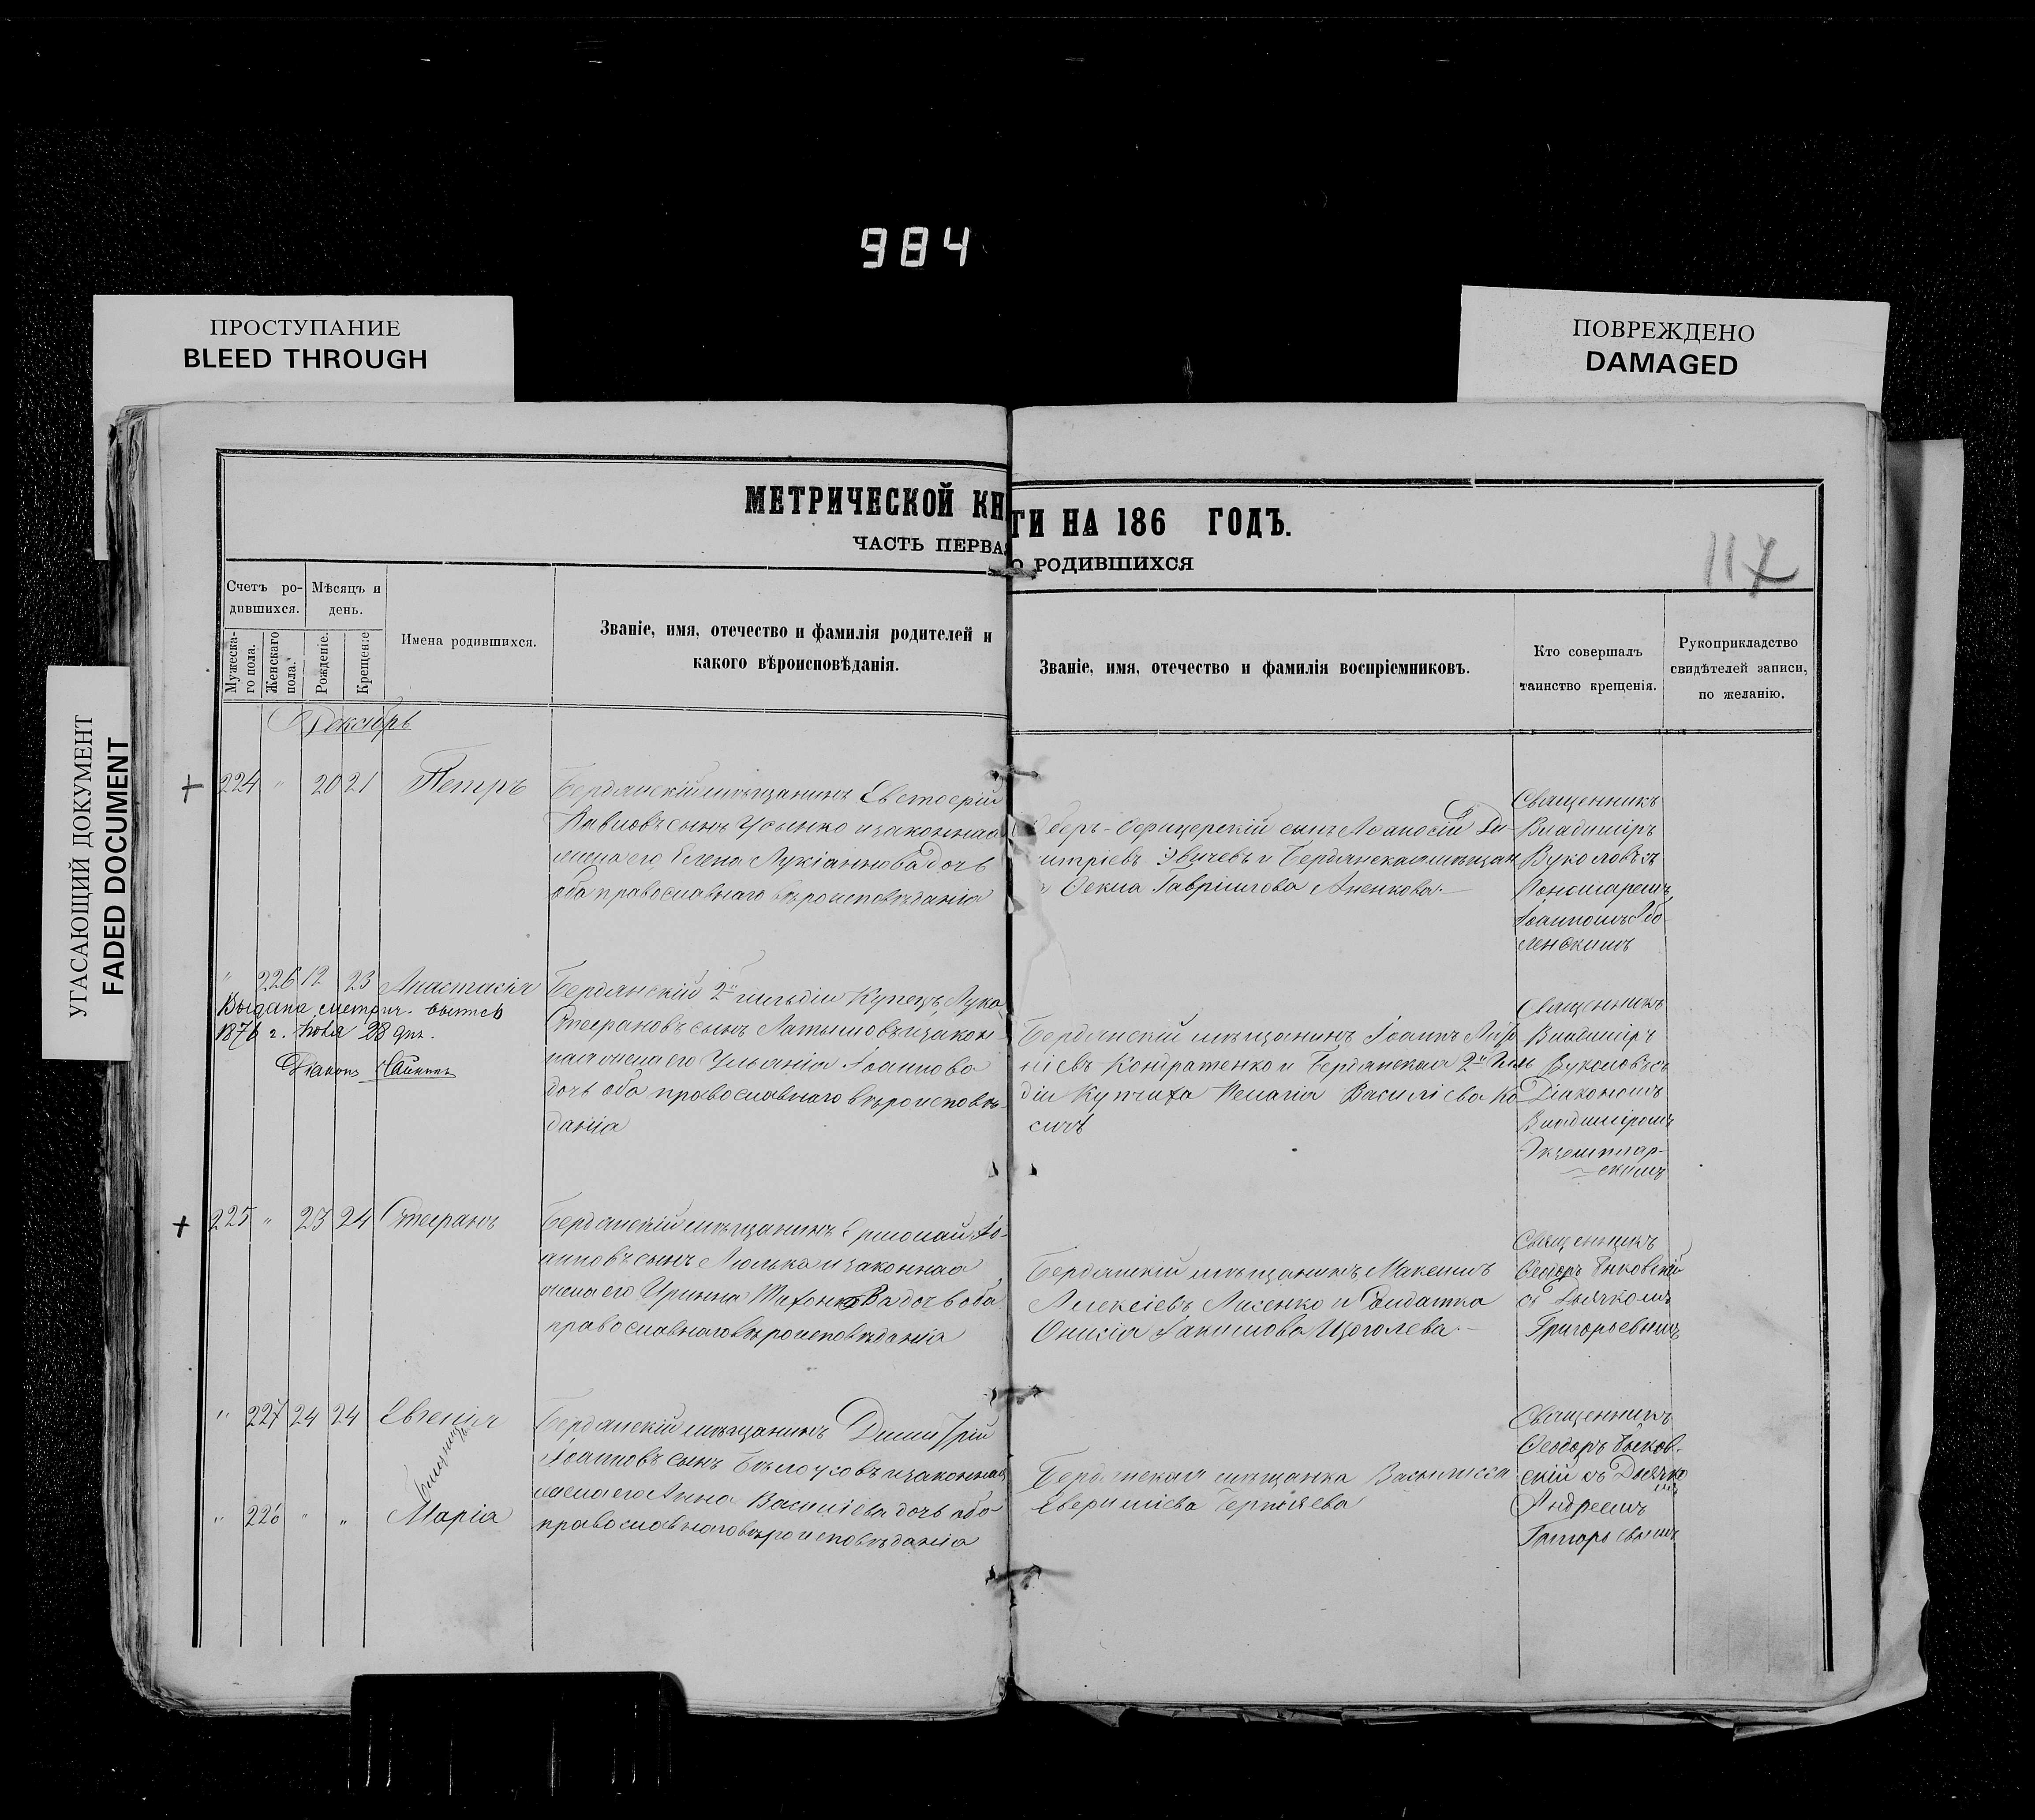 984
ПРОСТУПАНИЕ
BLEED THROUGH
ПОВРЕЖДЕНО
DAMAGED
УГАСАЮЩИЙ ДОКУМЕНТ
FADED DOCUMENT
МЕТРИЧЕСКОЙ КН
ЧАСТЬ ПЕРВА
ТИ НА 186 ГОДЪ.
О РОДИВШИХСЯ
117
Счетъ ро-
дившихся.
Мѣсяцъ и
день.
Мужеска-
го пола.
Женскаго
пола.
Рожденіе.
Крещеніе
Имена родившихся.
Званіе, имя, отечество и фамилія родителей и
какого вѣроисповѣданія.
Званіе, имя, отечество и фамилія воспріемниковъ.
Кто совершалъ
таинство крещенія.
Рукоприкладство
свидѣтелей записи,
по желанію.
Декабрь
+ 224 " 20 21 Петръ
Бердянскій мѣщанинъ
Павловъ сынъ Усенко и законная
жена его Елена дочь
оба православнаго вѣроисповѣданія
Оберъ-Офицерскій сынъ Ди-
митріевъ и Бердянская мѣщан
Ѳекла Гавріилова Аненкова
Священникъ
Владиміръ
Вуколовъ съ
Пономаремъ
Іоанномъ Обо
ленскимъ
" 226 12 23 Анастасія
Выдана метрич. выпись
1876 г. 28 дня.
Діаконъ
Бердянскій 2й гильдіи Купецъ Лука
Стефановъ сынъ Латышовъ и закон-
ная жена его Уліанія Іоаннова
дочь оба православнаго вѣроисповѣ-
данія
Бердянскій мѣщанинъ Іоаннъ
Кондратенко и Бердянская 2й Гиль
діи Купчиха Пелагія Василіева Ко
сичъ
Священникъ
Владиміръ
Вуколовъ съ
Діакономъ
Владиміромъ
Экземпляр-
скимъ
+ 225 " 23 24 Стефанъ
Бердянскій мѣщанинъ Ермолай Іо-
анновъ сынъ Люлька и законная
жена его Ирина Тихонова дочь оба
православнаго вѣроисповѣданія
Бердянскій мѣщанинъ Максимъ
Алексіевъ Лисенко и Солдатка
Онисія Іакимова Щоголева
Священникъ
Ѳеодоръ Быковскій
съ Дьячкомъ
Григорьевымъ
" 227 24 24 Евгенія
близнецы
" 226 " " Марія
Бердянскій мѣщанинъ Димитрій
Іоанновъ сынъ Бѣлоусовъ и законная
жена его Анна Василіева дочь оба
православнаго вѣроисповѣданія
Бердянская мѣщанка Василисса
Священникъ
Ѳеодоръ Быков-
скій съ Дьячко
мъ
Андреемъ